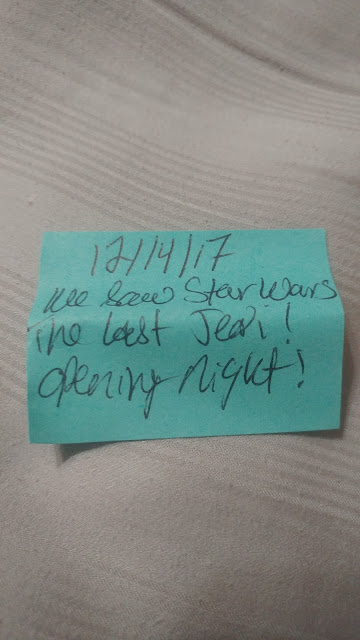 12/14/17
we saw Star Wars
The last Jedi!
opening night!